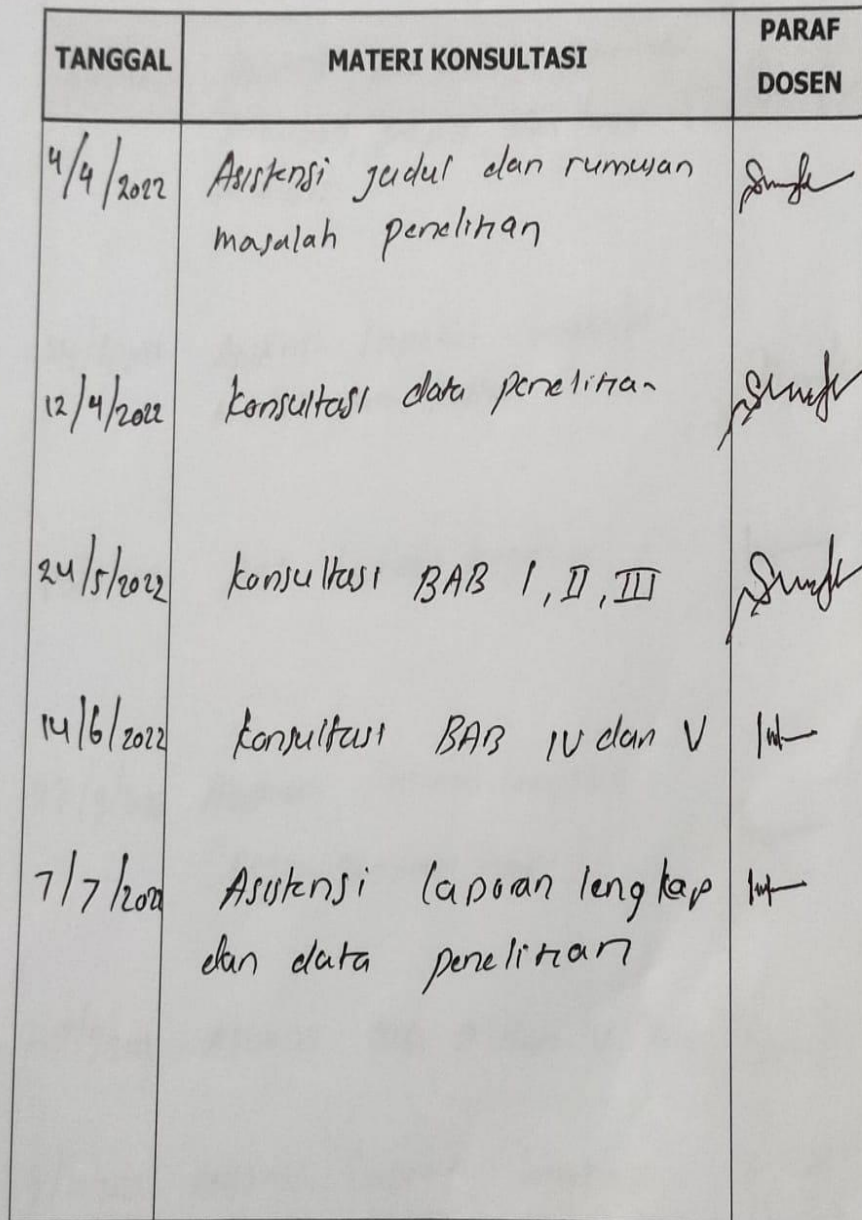 TANGGAL MATERI KONSULTASI PARAF
DOSEN
4/4/2022 Asistensi judul dan rumusan
masalah penelitian
12/4/2022 konsultasi data penelitian
24/5/2022 konsultasi BAB I, II, III
14/6/2022 konsultasi BAB IV dan V
7/7/2022 Asistensi laporan lengkap
dan data penelitian